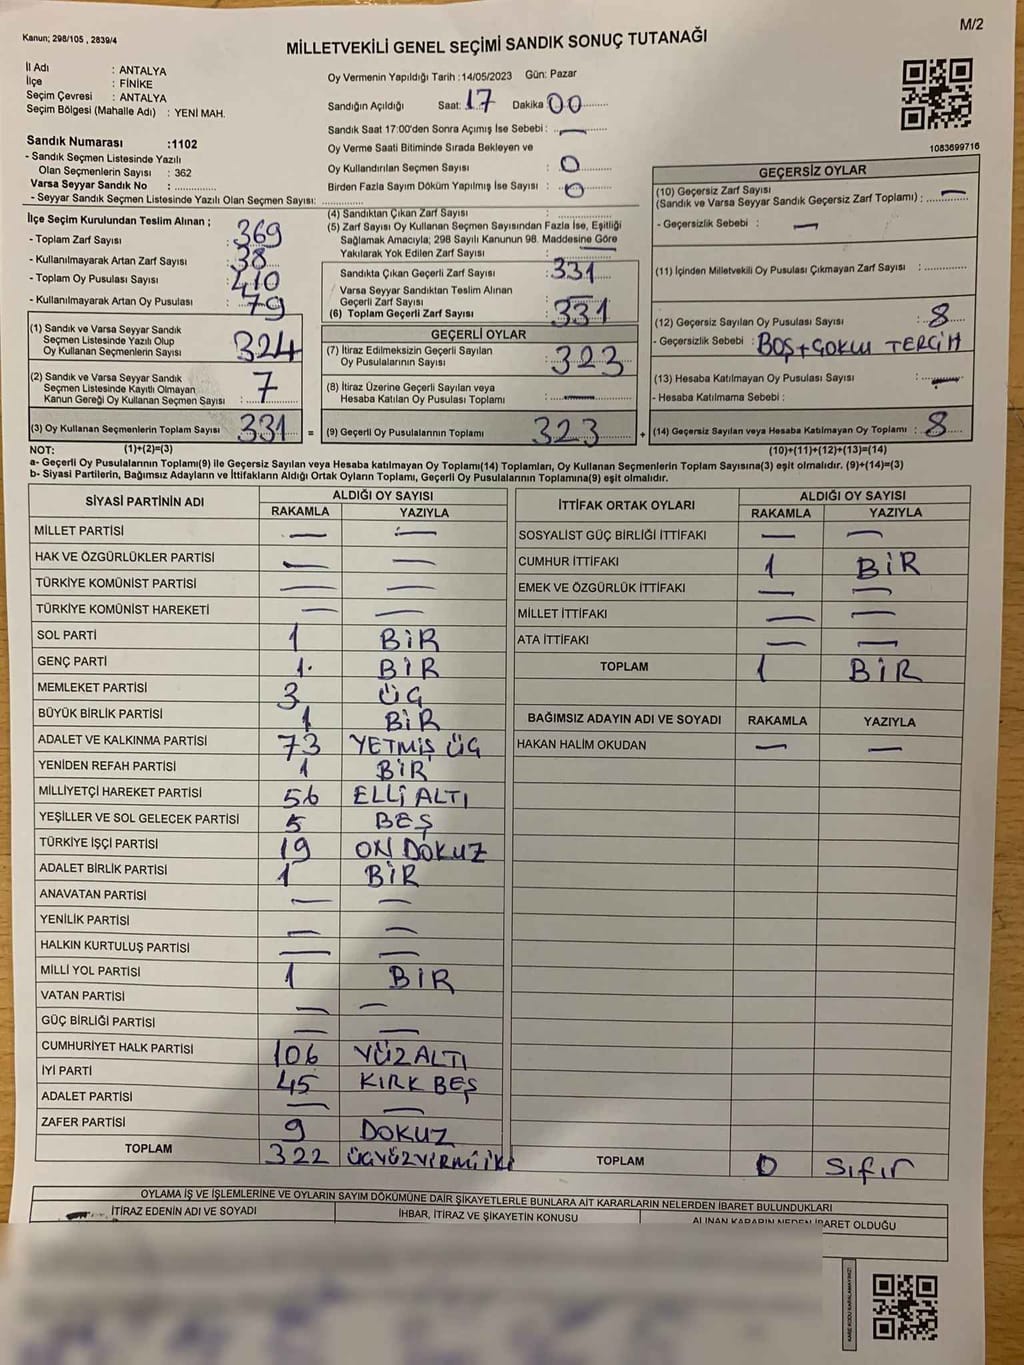 Kanun; 298/105 , 2839/4
M/2
MİLLETVEKİLİ GENEL SEÇİMİ SANDIK SONUÇ TUTANAĞI
İl Adı : ANTALYA
İlçe : FİNİKE
Seçim Çevresi : ANTALYA
Seçim Bölgesi (Mahalle Adı) : YENİ MAH.
Sandık Numarası :1102
- Sandık Seçmen Listesinde Yazılı
Olan Seçmenlerin Sayısı : 362
Varsa Seyyar Sandık No : ................
- Seyyar Sandık Seçmen Listesinde Yazılı Olan Seçmen Sayısı: ................
Oy Vermenin Yapıldığı Tarih :14/05/2023 Gün: Pazar
Sandığın Açıldığı Saat: 17 Dakika 00
Sandık Saat 17:00'den Sonra Açımış İse Sebebi : —
Oy Verme Saati Bitiminde Sırada Bekleyen ve
Oy Kullandırılan Seçmen Sayısı : 0
Birden Fazla Sayım Döküm Yapılmış İse Sayısı : 0
1083699716
İlçe Seçim Kurulundan Teslim Alınan ;
- Toplam Zarf Sayısı : 369
- Kullanılmayarak Artan Zarf Sayısı : 38
- Toplam Oy Pusulası Sayısı : 410
- Kullanılmayarak Artan Oy Pusulası : 79
(1) Sandık ve Varsa Seyyar Sandık
Seçmen Listesinde Yazılı Olup
Oy Kullanan Seçmenlerin Sayısı 324
(2) Sandık ve Varsa Seyyar Sandık
Seçmen Listesinde Kayıtlı Olmayan
Kanun Gereği Oy Kullanan Seçmen Sayısı : 7
(3) Oy Kullanan Seçmenlerin Toplam Sayısı 331
(4) Sandıktan Çıkan Zarf Sayısı : ................
(5) Zarf Sayısı Oy Kullanan Seçmen Sayısından Fazla İse, Eşitliği
Sağlamak Amacıyla; 298 Sayılı Kanunun 98. Maddesine Göre
Yakılarak Yok Edilen Zarf Sayısı : —
Sandıkta Çıkan Geçerli Zarf Sayısı : 331
Varsa Seyyar Sandıktan Teslim Alınan
Geçerli Zarf Sayısı : —
(6) Toplam Geçerli Zarf Sayısı : 331
GEÇERLİ OYLAR
(7) İtiraz Edilmeksizin Geçerli Sayılan
Oy Pusulalarının Sayısı : 323
(8) İtiraz Üzerine Geçerli Sayılan veya
Hesaba Katılan Oy Pusulası Toplamı : —
= (9) Geçerli Oy Pusulalarının Toplamı 323
GEÇERSİZ OYLAR
(10) Geçersiz Zarf Sayısı
(Sandık ve Varsa Seyyar Sandık Geçersiz Zarf Toplamı) : —
- Geçersizlik Sebebi : —
(11) İçinden Milletvekili Oy Pusulası Çıkmayan Zarf Sayısı : ................
(12) Geçersiz Sayılan Oy Pusulası Sayısı : 8
- Geçersizlik Sebebi : BOŞ+ÇOKLU TERCİH
(13) Hesaba Katılmayan Oy Pusulası Sayısı : —
- Hesaba Katılmama Sebebi :
+ (14) Geçersiz Sayılan veya Hesaba Katılmayan Oy Toplamı : 8
NOT: (1)+(2)=(3) (10)+(11)+(12)+(13)=(14)
a- Geçerli Oy Pusulalarının Toplamı(9) ile Geçersiz Sayılan veya Hesaba katılmayan Oy Toplamı(14) Toplamları, Oy Kullanan Seçmenlerin Toplam Sayısına(3) eşit olmalıdır. (9)+(14)=(3)
b- Siyasi Partilerin, Bağımsız Adayların ve İttifakların Aldığı Ortak Oyların Toplamı, Geçerli Oy Pusulalarının Toplamına(9) eşit olmalıdır.
SİYASİ PARTİNİN ADI ALDIĞI OY SAYISI
RAKAMLA YAZIYLA
MİLLET PARTİSİ — —
HAK VE ÖZGÜRLÜKLER PARTİSİ — —
TÜRKİYE KOMÜNİST PARTİSİ — —
TÜRKİYE KOMÜNİST HAREKETİ — —
SOL PARTİ 1 BİR
GENÇ PARTİ 1. BİR
MEMLEKET PARTİSİ 3 ÜÇ
BÜYÜK BİRLİK PARTİSİ 1 BİR
ADALET VE KALKINMA PARTİSİ 73 YETMİŞ ÜÇ
YENİDEN REFAH PARTİSİ 1 BİR
MİLLİYETÇİ HAREKET PARTİSİ 56 ELLİ ALTI
YEŞİLLER VE SOL GELECEK PARTİSİ 5 BEŞ
TÜRKİYE İŞÇİ PARTİSİ 19 ON DOKUZ
ADALET BİRLİK PARTİSİ 1 BİR
ANAVATAN PARTİSİ — —
YENİLİK PARTİSİ — —
HALKIN KURTULUŞ PARTİSİ — —
MİLLİ YOL PARTİSİ 1 BİR
VATAN PARTİSİ — —
GÜÇ BİRLİĞİ PARTİSİ — —
CUMHURİYET HALK PARTİSİ 106 YÜZ ALTI
İYİ PARTİ 45 KIRK BEŞ
ADALET PARTİSİ — —
ZAFER PARTİSİ 9 DOKUZ
TOPLAM 322 ÜÇYÜZYİRMİİKİ
İTTİFAK ORTAK OYLARI ALDIĞI OY SAYISI
RAKAMLA YAZIYLA
SOSYALİST GÜÇ BİRLİĞİ İTTİFAKI — —
CUMHUR İTTİFAKI 1 BİR
EMEK VE ÖZGÜRLÜK İTTİFAKI — —
MİLLET İTTİFAKI — —
ATA İTTİFAKI — —
TOPLAM 1 BİR
BAĞIMSIZ ADAYIN ADI VE SOYADI RAKAMLA YAZIYLA
HAKAN HALİM OKUDAN — —
TOPLAM 0 Sıfır
OYLAMA İŞ VE İŞLEMLERİNE VE OYLARIN SAYIM DÖKÜMÜNE DAİR ŞİKAYETLERLE BUNLARA AİT KARARLARIN NELERDEN İBARET BULUNDUKLARI
İTİRAZ EDENİN ADI VE SOYADI
İHBAR, İTİRAZ VE ŞİKAYETİN KONUSU
ALINAN KARARIN NEDEN İBARET OLDUĞU
KARE KODU KARALAMAYINIZ!